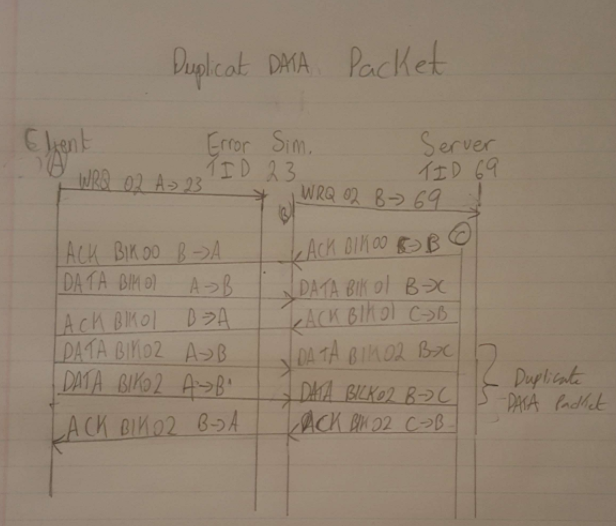 Duplicat DATA Packet
Client Error Sim. Server
(A) TID 23 TID 69
WRQ 02 A→23 WRQ 02 B→69
(B)
ACK Blk00 B→A ACK Blk00 C→B (C)
DATA Blk01 A→B DATA Blk 01 B→C
ACK Blk01 B→A ACK Blk01 C→B
DATA Blk02 A→B DATA Blk02 B→C
DATA Blk02 A→B DATA Blk02 B→C
Duplicate
DATA Packet
ACK Blk02 B→A ACK Blk02 C→B